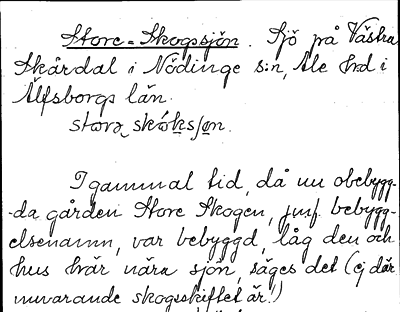 Store-Skogssjön. Sjö på Västra
Skårdal i Nödinge s:n, Ale hrd i
Älfsborgs län.
stora skóksjøn.
I gammal tid, då nu obebygg-
-da gården Store Skogen, jmf. bebygg-
elsenamn, var bebyggd, låg den och
hus här nära sjön, säges det (ej där
nuvarande skogsskiftet är.)